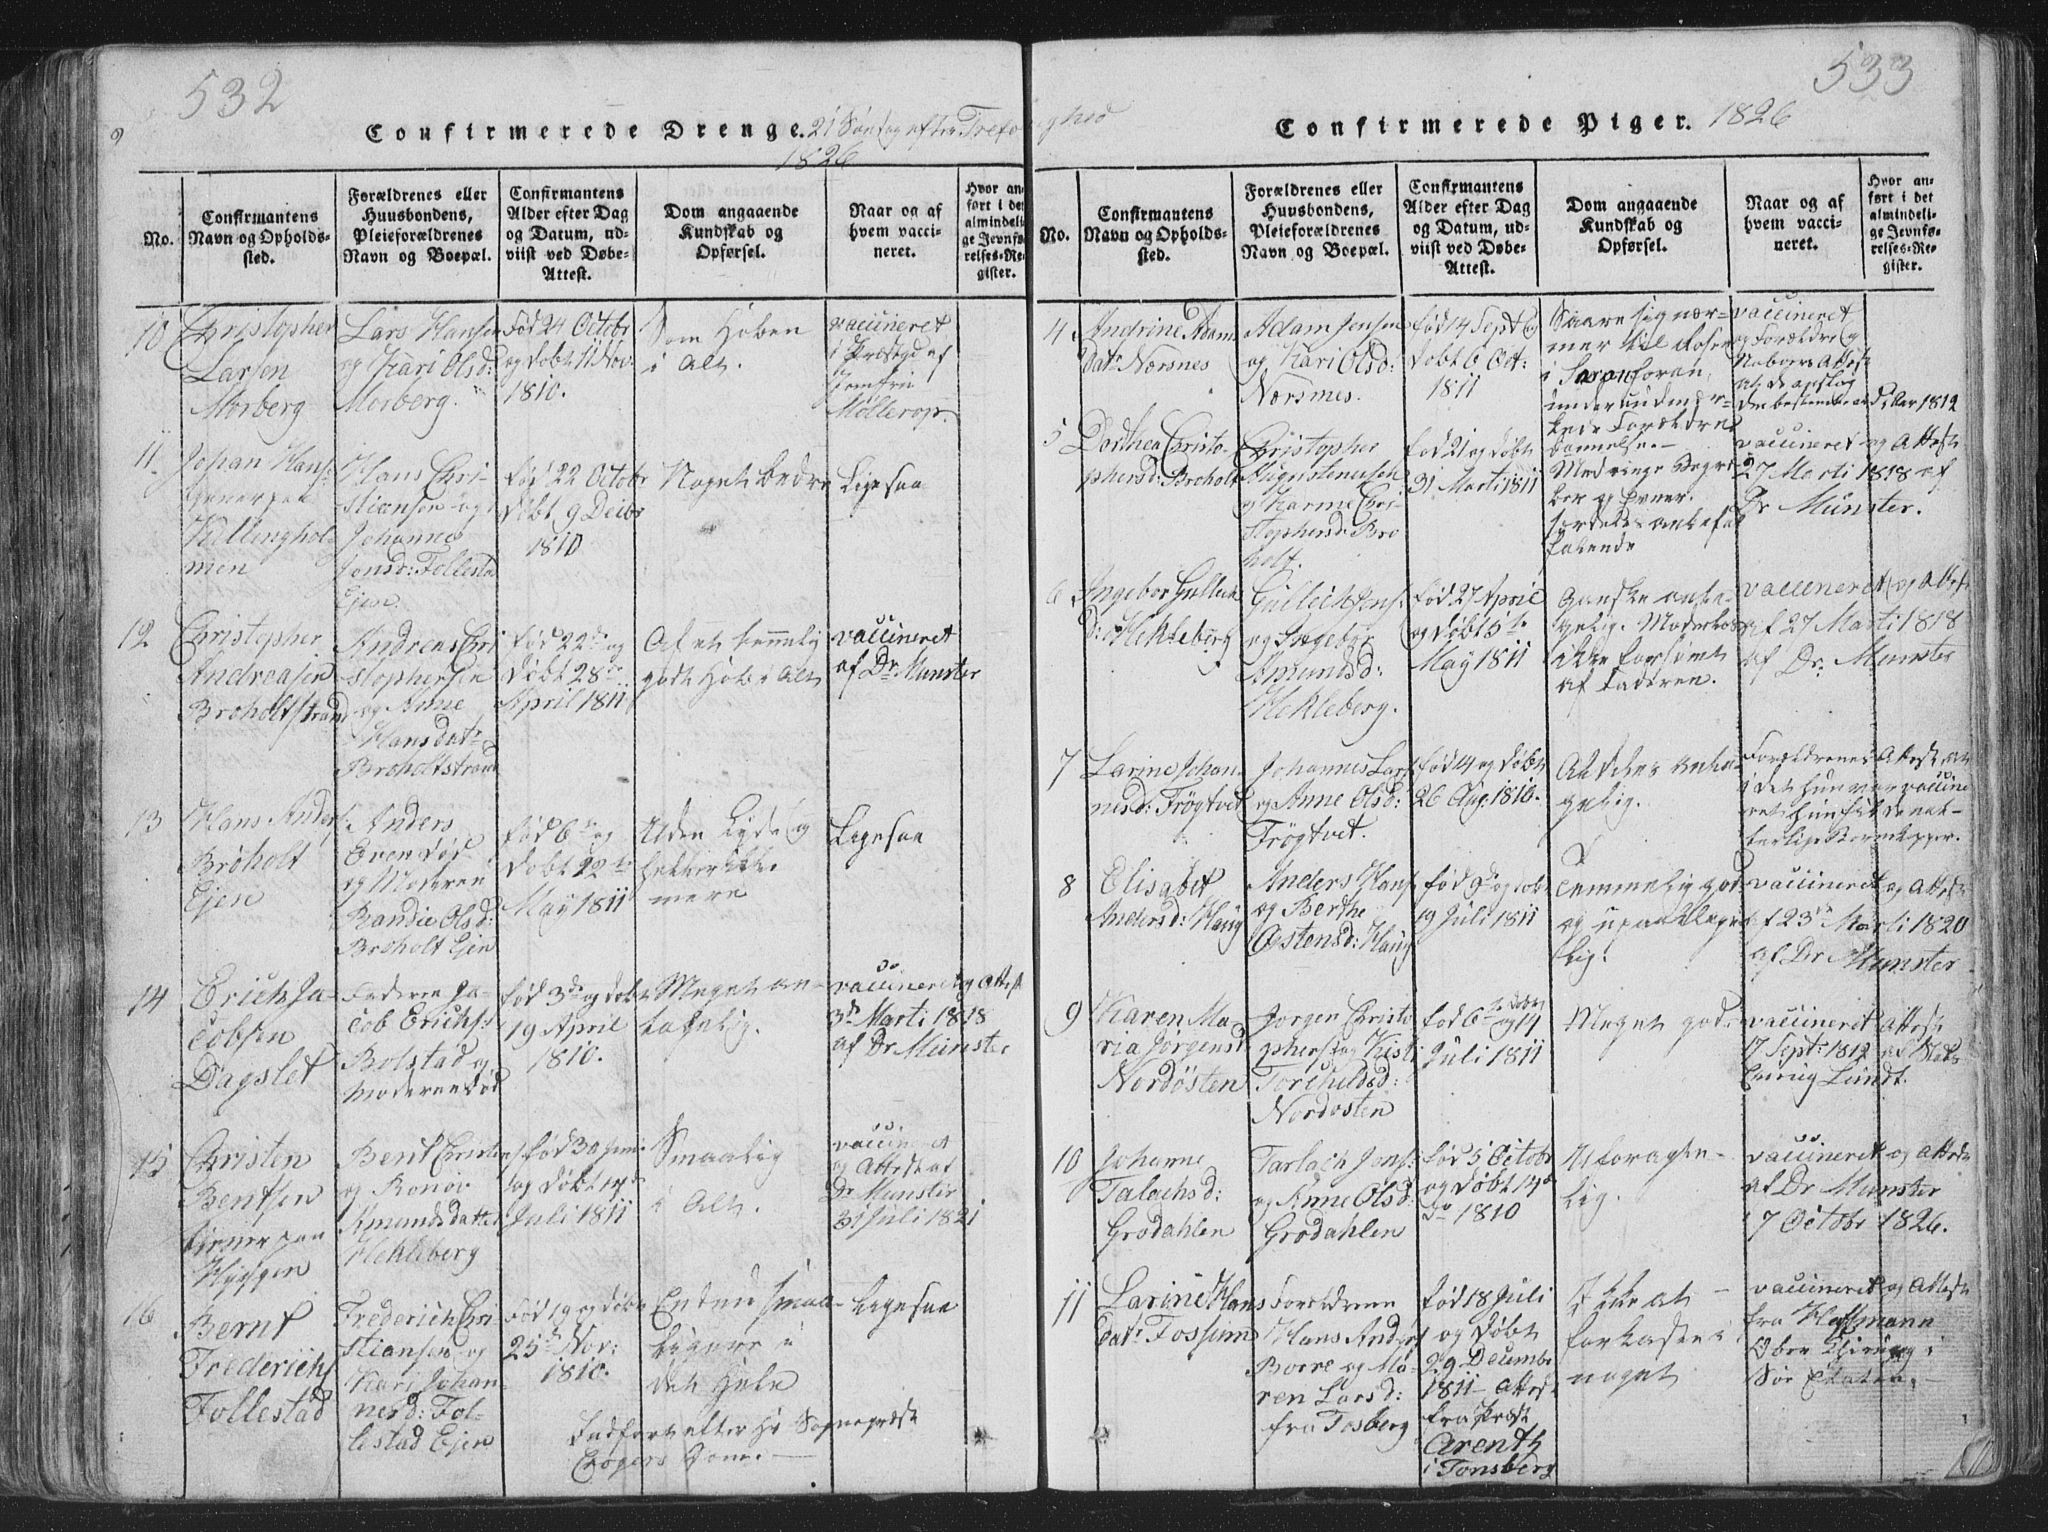 532
Confirmerede Drenge. 21 Søndag efter Trefoldighed
1826
No.
Confirmantens
Navn og Opholds-
sted.
Forældrenes eller
Huusbondens,
Pleieforældrenes
Navn og Boepæl.
Confirmantens
Alder efter Dag
og Datum, ud-
viist ved Døbe-
Attest.
Dom angaaende
Kundskab og
Opførsel.
Naar og af
hvem vacci-
neret.
Hvor an-
ført i det
almindeli-
ge Jevnfø-
relses-Re-
gister.
10
Christopher
Larsen
Morberg
Lars Hansen
og Kari Olsd:
Morberg.
Fød 24 Octobr
og døbt 11 Nov.
1810.
Som Hoben
i Alt.
vaccineret
i af
Jomfru
Møllerop.
11
Johan Hans:
tiener paa
Killinghol-
men
Hans Chri-
stiansen og
Johanne
Jonsd: Follestad
Ejen.
Fød 22 Octobr
døbt 9 Decbr
1810
Noget bedre
Ligesaa
12
Christopher
Andreasen
Broholtstrand
Andreas Chri
stophersen
og Anne
Hansdatr
Broholtstrand
Fød 22de og
døbt 28de
April 1811
Af et temmelig
godt Hob i Alt
vaccineret
af Dr Munster
13
Hans Anders
Broholt
Ejen
Anders
Even død
og Moderen
Randie Olsd:
Broholt Ejen
Fød 6te og
døbt 12te
May 1811
Uden Lyde og
heller ikke
mere
Ligesaa
14
Erich Ja-
cobsen
Dagslet
Faderen Ja-
cob Erichs:
Bolstad og
Moderen død
Fød 3de og døbt
19 April
1810.
Meget an-
tagelig.
vaccineret og Attest
3de Marti 1818
af Dr Munster
15
Christen
Bentsen
tiener paa
Hyggen
Bent Christens
og Ronov
Amundsdatter
Hekleberg
Fød 30 Juni
og døbt 14de
Juli 1811
Smaalig
i Alt.
vaccineret
og Attest af
Dr Munster
31 Juli 1821
16
Bernt
Frederichs
Follestad
Frederich Chri
stiansen og
Kari Johan-
nesd: Fol-
lestad Ejen
Fød 19 og døbt
25de Nov:
1810.
Endnu smaa-
ligere i
det Hele
Ligesaa
Indført efter Hr Sognepræst
Crøgers Dom.
533
Confirmerede Piger. 1826
No.
Confirmantens
Navn og Opholds-
sted.
Forældrenes eller
Huusbondens,
Pleieforældrenes
Navn og Boepæl.
Confirmantens
Alder efter Dag
og Datum, ud-
viist ved Døbe-
Attest.
Dom angaaende
Kundskab og
Opførsel.
Naar og af
hvem vacci-
neret.
Hvor an-
ført i det
almindeli-
ge Jevnfø-
relses-Re-
gister.
4
Andrine Adams
datr Nærsnes
Adam Jensen
og Kari Olsd:
Nærsnes.
Fød 14 Sept og
døbt 6 Oct:
1811
mer til
foran,
Forældre
vaccineret
og Forældre og
Naboers Attest
Aar 1812
5
Dorthea Christo-
phersd: Broholt
Christopher
Augustinusen
og Karine Chri-
stophersd Bro
holt.
Fød 21 og døbt
31 Marti 1811
Med ringe Begre
ber og Evner.
vaccineret og Attest
27 Marti 1818 af
Dr Munster.
6
Ingebor Gullich
d: Hekleberg
Gullich Jens:
og Ingebor
Amundsd:
Hekleberg.
Fød 27 April
og døbt 5te
May 1811
Ganske anta-
gelig. Moderløs
ikke forsømt
af Faderen.
vaccineret og Attest
af 27 Marti 1818
af Dr. Munster
7
Larine Johan-
nesd: Frøgtvet
Johannes Lars
og Anne Olsd:
Frøgtvet.
Fød 14 og døbt
26 Aug. 1810.
gelig.
Forældrenes Attest at
i det hun var vaccine
ret hun fik de nat-
turlige Børnekopper.
8
Elisabet
Andersd: Haug
Anders Hans
og Berthe
Østensd: Haug
Fød 9de og døbt
19 Juli 1811
Temmelig god
og upaaklage
lig.
vaccineret og Attest
af 23de Marti 1820
af Dr Munster
9
Karen Ma-
ria Jørgensd
Nordøsten
Jørgen Christo
phers og Kisti
Torchildsd:
Nordøsten
Fød 6te døbt
og 14
Juli 1811
Meget god.
vaccineret Attest
17 Sept: 1812 af
Lundt.
10
Johanne
Talachsd:
Grodahlen
Tarlach Jons:
og Anne Olsd:
Grodahlen
Fød 5 Octobr
og døbt 14de
do 1810
lig.
vaccineret og Attest
af Dr Munster
7 Octobr 1826.
11
Larine Hans
datr Fossum
Forældrene
Hans Anders
Borre og Ma-
ren Larsd:
fra Tosberg
Fød 18 Juli
og døbt
29 Decembr
1811 Attest
fra Præst
Arentz
i Tonsberg
Ikke at
forkaste i
noget
vaccineret og Attest
fra Hoffmann
Ober Chirurg i
Sør Etaten.